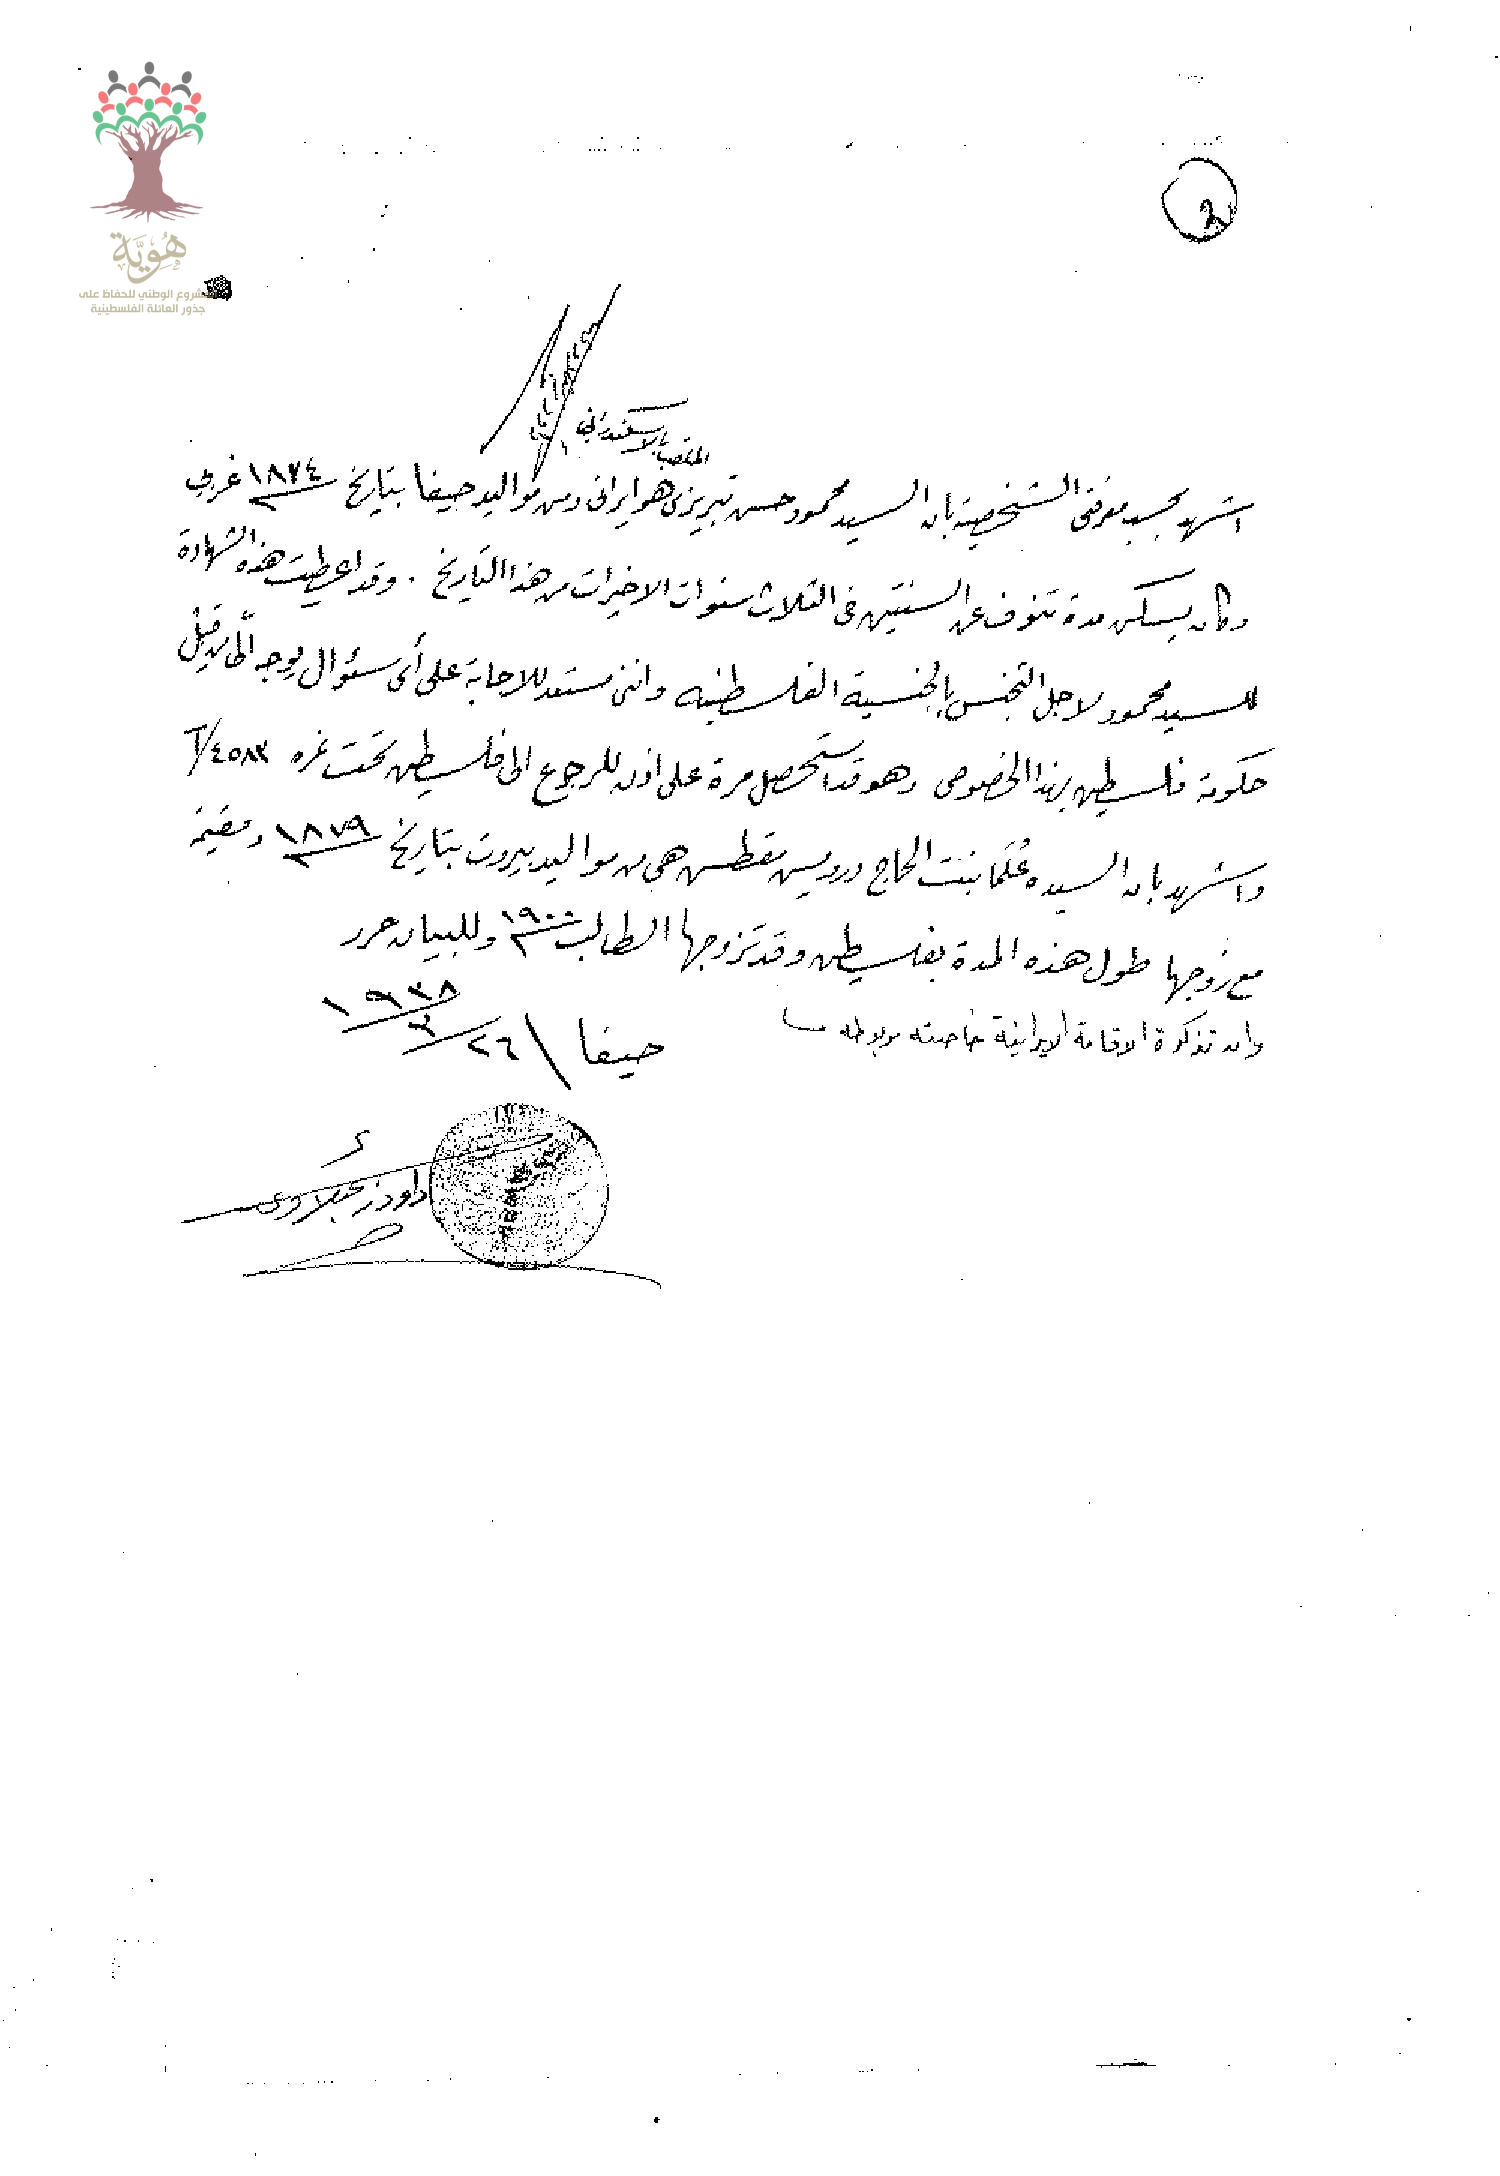 هُوِيَّة
المشروع الوطني للحفاظ على
جذور العائلة الفلسطينية
الملقب بالاسكندراني
اشهد بحسب معرفتي الشخصية بان السيد محمود حسن تبريزي هو ايراني ومن مواليد حيفا بتاريخ ١٨٧٤ غربي
وكان يسكن مدة تنوف عن السنتين في الثلاث سنوات الاخيرات من هذا التاريخ . وقد اعطيت هذه الشهادة
للسيد محمود لاجل التجنس بالجنسية الفلسطينيه وانني مستعد للاجابة على أي سئوال يوجه اليّ من قبل
حكومة فلسطين بهذا الخصوص وهو قد استحصل مرة على اذن للرجوع الى فلسطين تحت نمره ٤٥٨٣/٦
واشهد بان السيده بنت الحاج درويش هي من مواليد بيروت بتاريخ ١٨٧٩ ومقيمة
مع زوجها طول هذه المدة بفلسطين وقد تزوجها الطالب ١٩٠٠ وللبيان حرر
وان تذكرة الاقامة الايرانية خاصته مربوطه
حيفا ٢٦/٣/١٩٣٨
داود